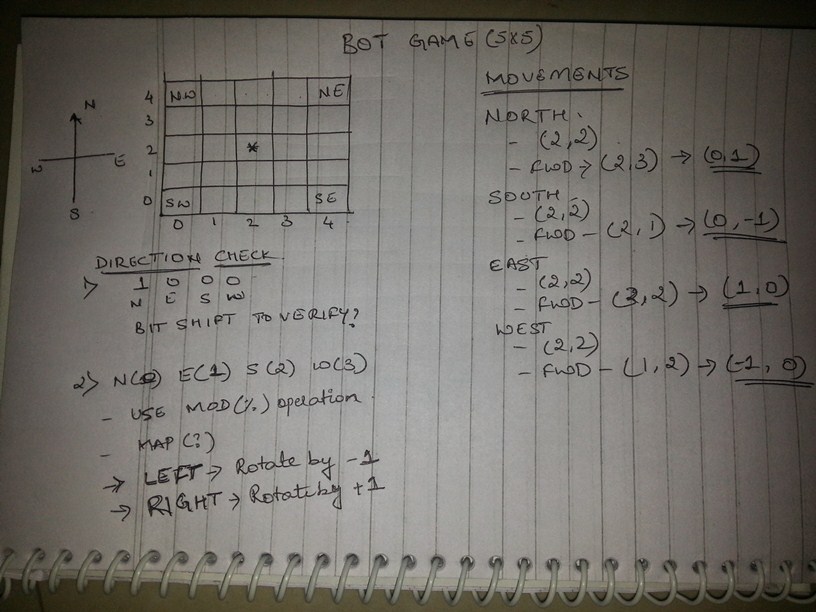 BOT GAME (5X5)
N
W E
S
4 NW NE
3
2 *
1
0 SW SE
0 1 2 3 4
DIRECTION CHECK
1> 1 0 0 0
N E S W
BIT SHIFT TO VERIFY?
2> N(0) E(1) S(2) W(3)
- USE MOD(%) operation.
- MAP(?)
→ LEFT → Rotate by -1
→ RIGHT → Rotate by +1
MOVEMENTS
NORTH.
- (2,2)
- FWD → (2,3) → (0,1)
SOUTH -
- (2,2)
- FWD - (2,1) → (0,-1)
EAST
- (2,2)
- FWD - (3,2) → (1,0)
WEST
- (2,2)
- FWD - (1,2) → (-1, 0)